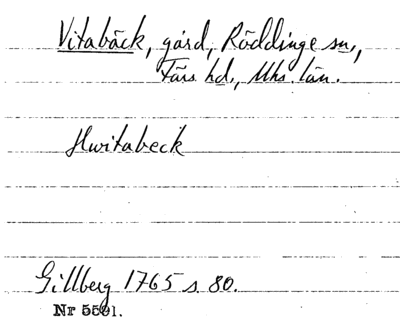 Vitabäck, gård, Röddinge sn,
Färs hd., Mhs. län.
Hwitabeck
Gillberg 1765 s 80.
Nr 5591.